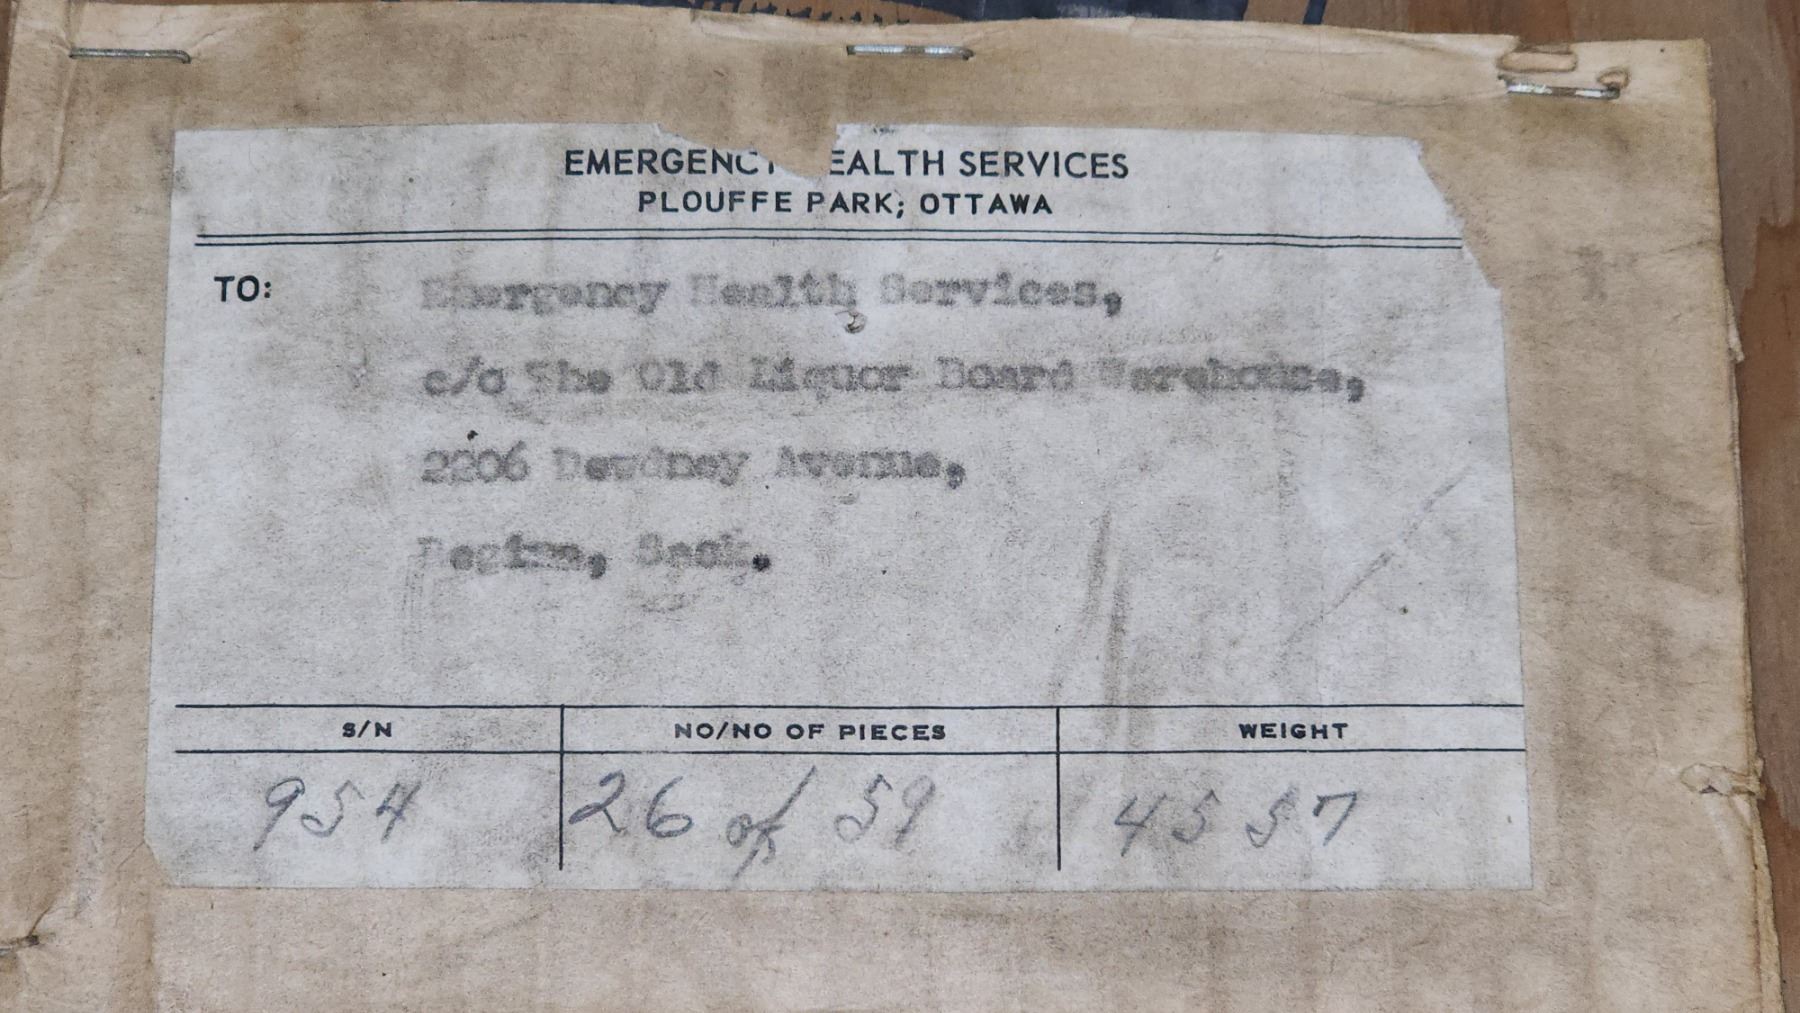 EMERGENCY HEALTH SERVICES
PLOUFFE PARK; OTTAWA
TO:
Emergency Health Services,
c/o The Old Liquor Board Warehouse,
2206 Dewdney Avenue,
Regina, Sask.
S/N NO/NO OF PIECES WEIGHT
954 26 of 59 45 57